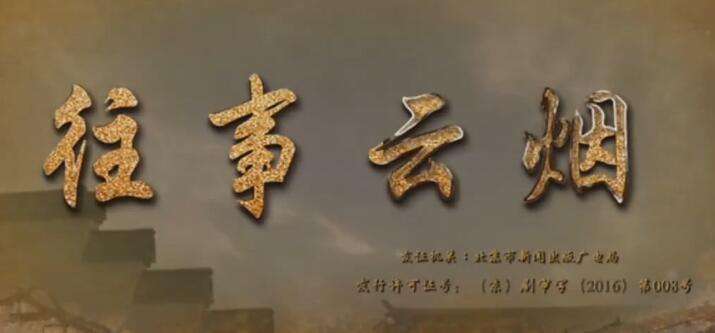 往事云烟
发证机关：北京市新闻出版广电局
发行许可证号：（京）剧审字（2016）第008号